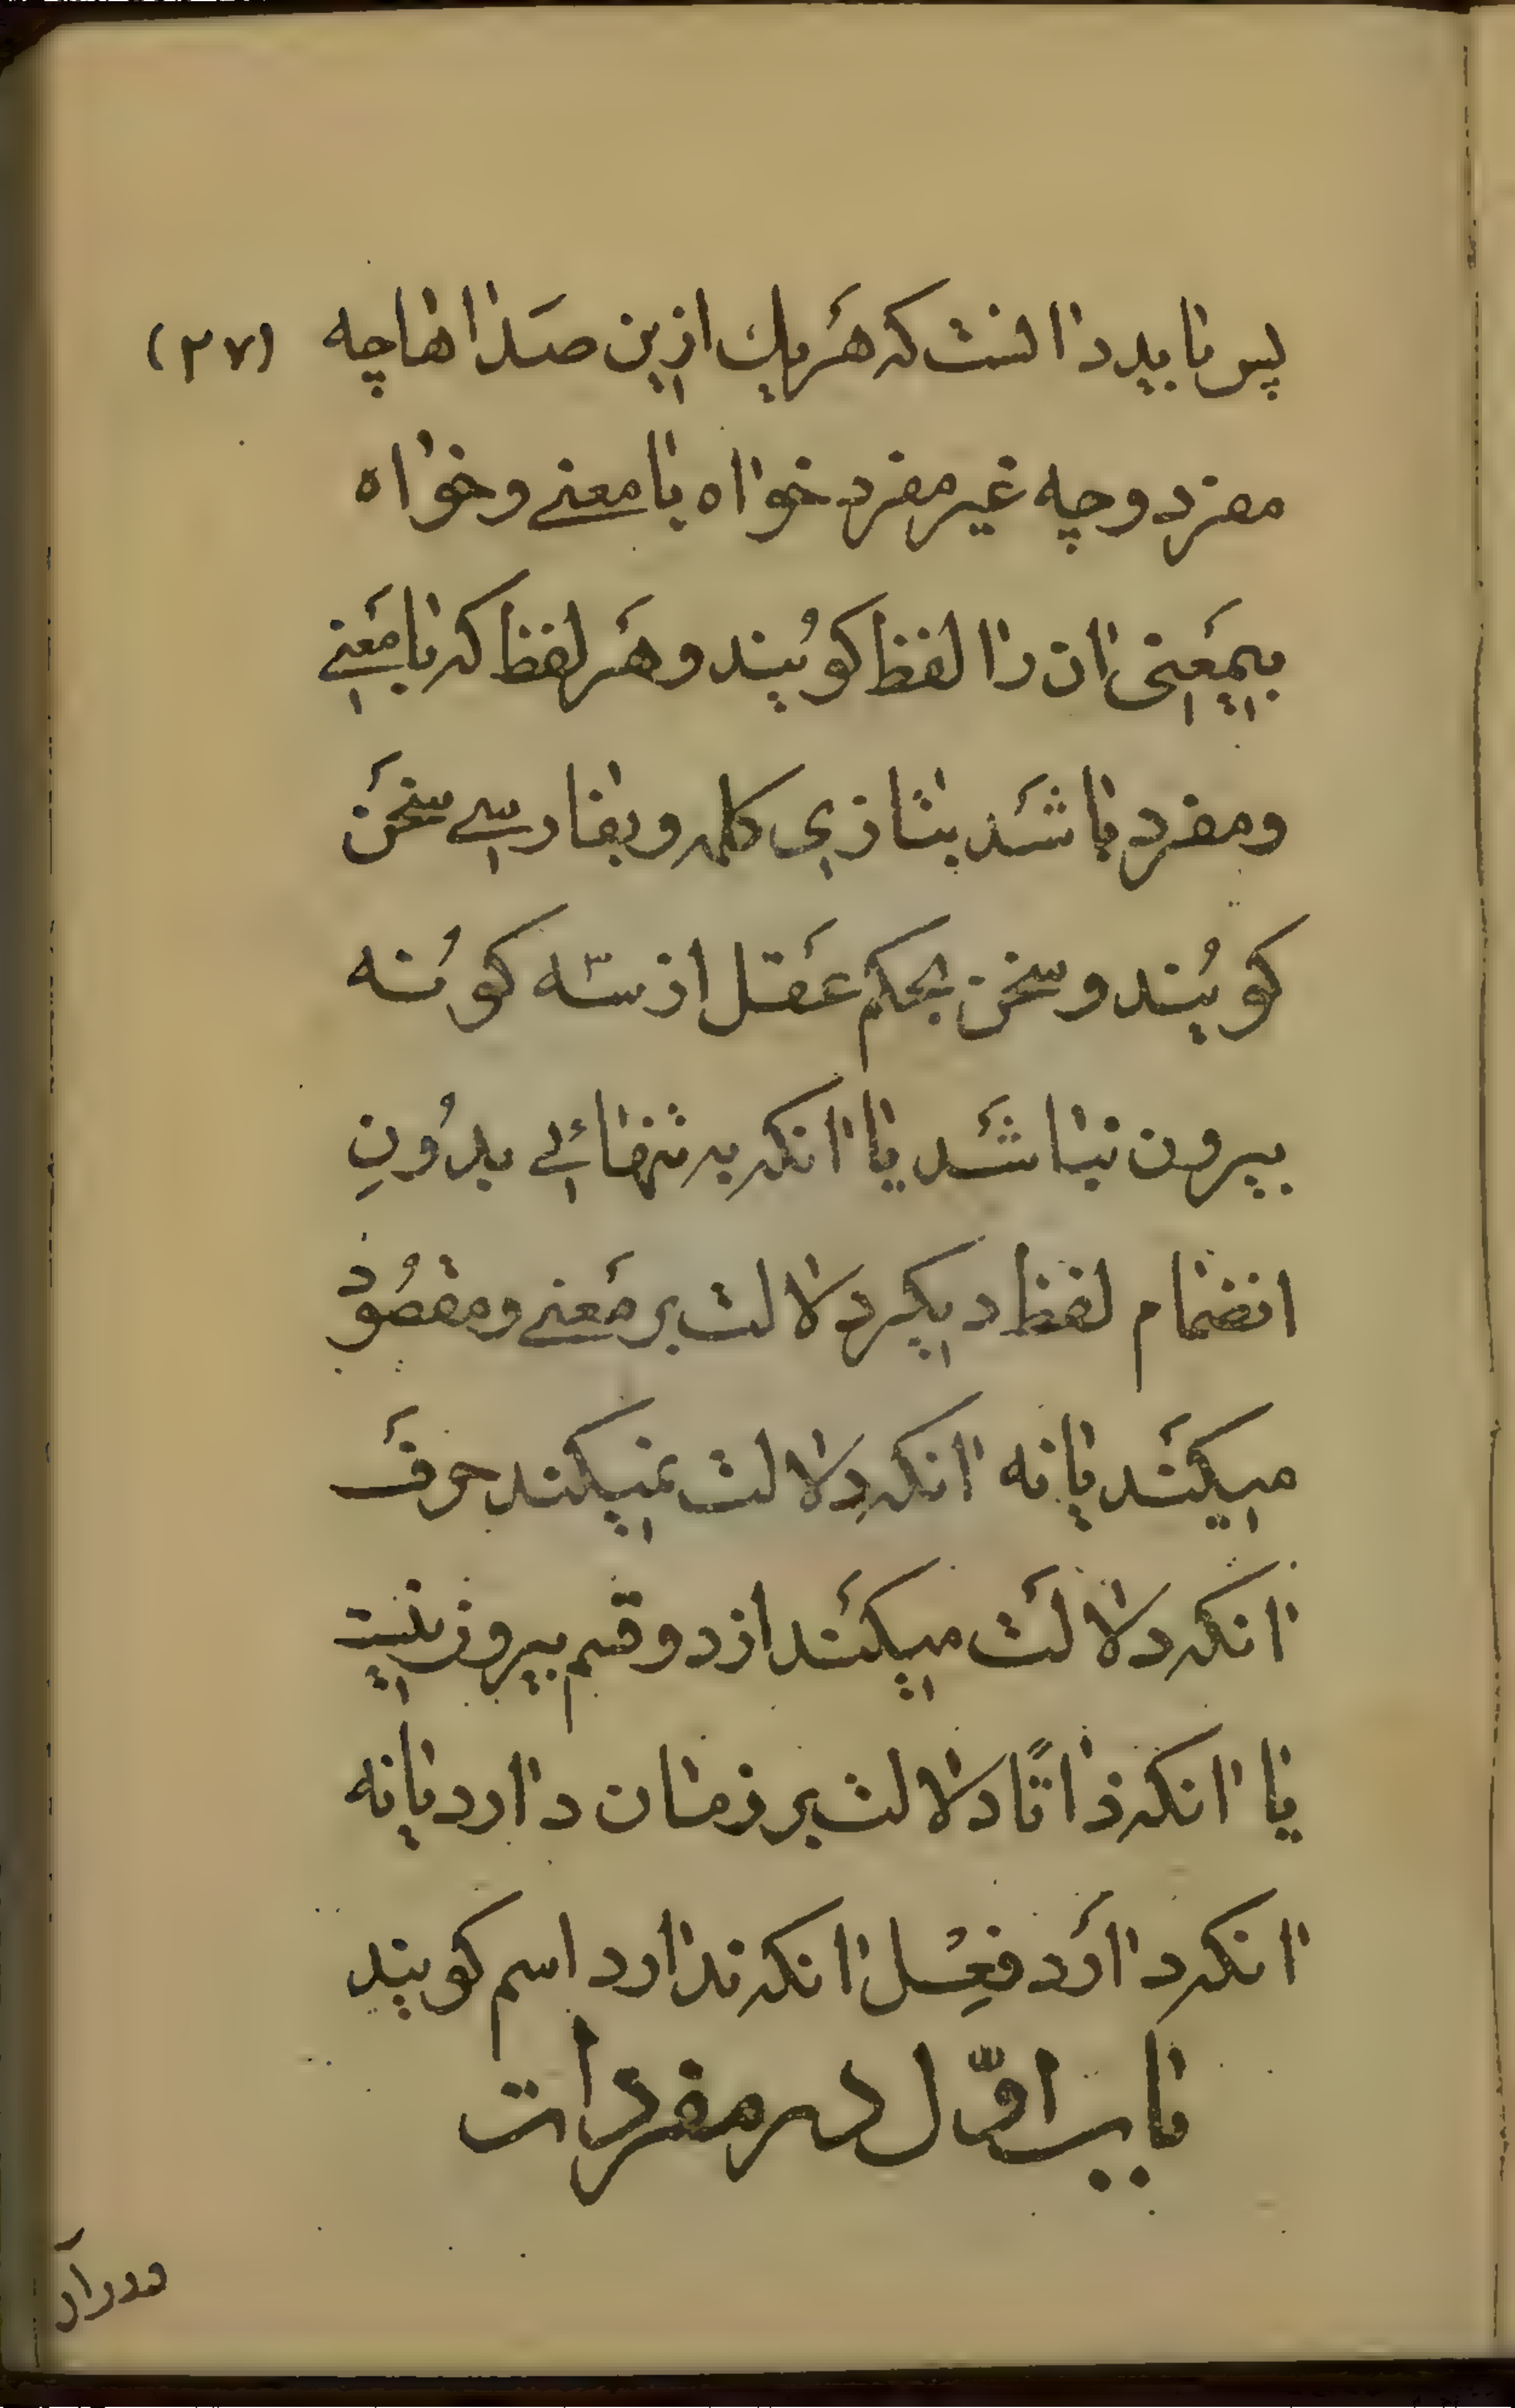 پس باید دانست که هَر یك ازین صَداها چه (۲۷)
مفرد و چه غیر مفرد خواه با معنے و خواه
بیمَعنی ان را لفظ کویُند و هَر لفظ که با مَعنے
و مفرد باشَد بتازی کلمه و بفارسے سخَن
کویُند و سخن بحکم عَقل از سَه کوُنه
بیرون نباشَد یا انکه به تنهائے بدُونِ
انضمام لفظ دیکر دلالت بر مَعنے و مقصُود
میکنَد یا نه انکه دِلالت نمیکند حرفَ
انکه دلالَت میکنَد از دو قسم بیرون نیست
یا انکه ذاتًا دلالت بر زمان دارد یا نه
انکه دارَد فعِْل انکه ندارد اسم کویند
باب اوّل در مفردات